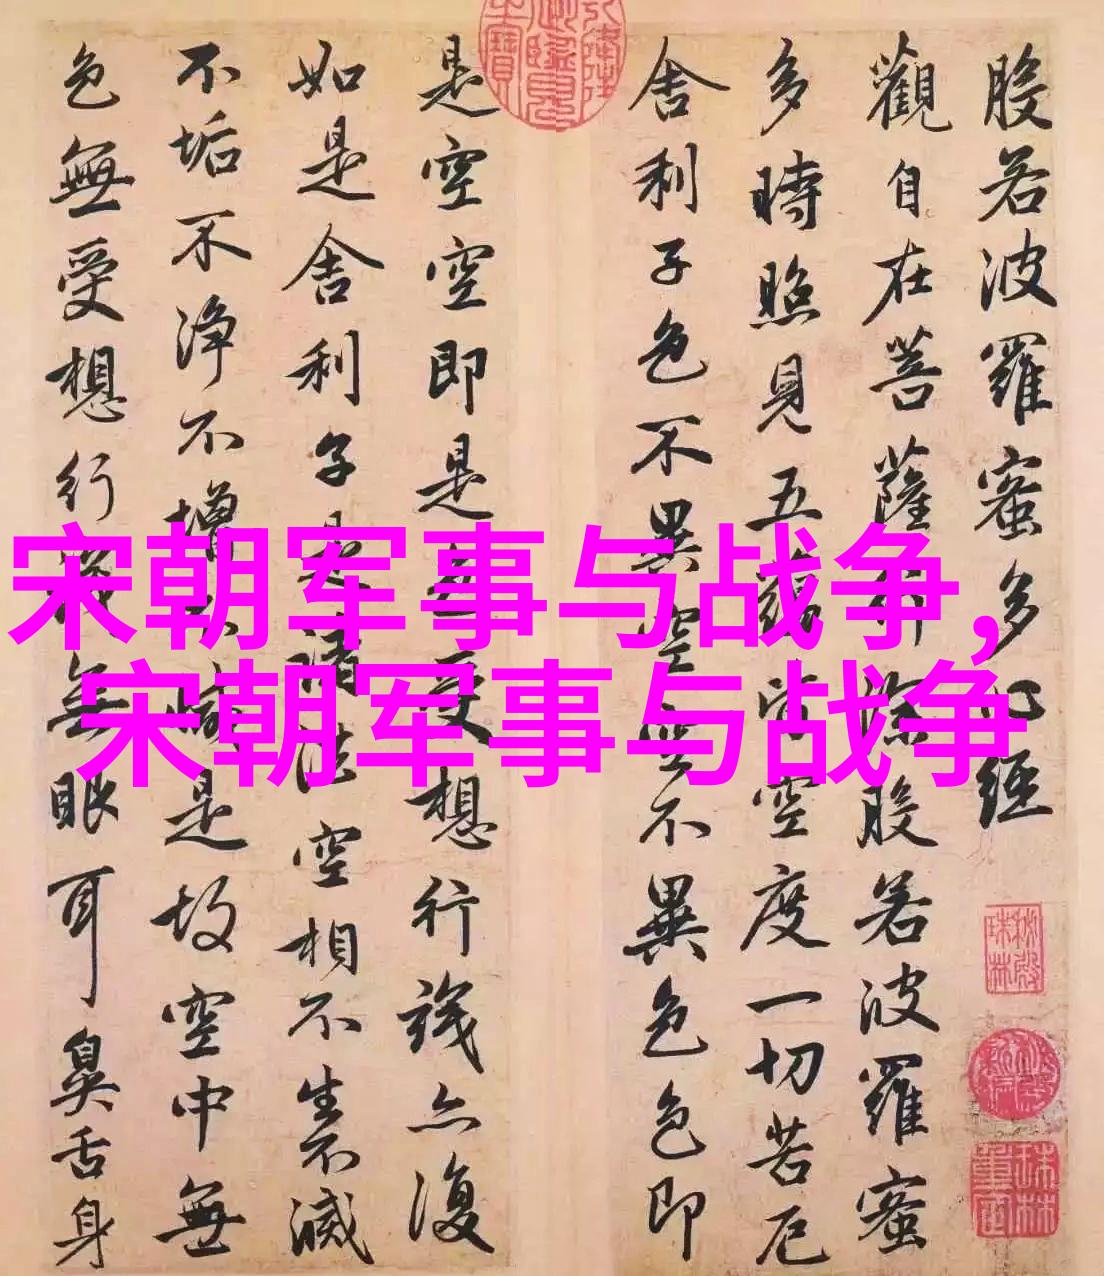 般若波羅蜜多心經
觀自在菩薩行深般若波羅蜜
多時照見五蘊皆空度一切苦厄
舍利子色不異空空不異色色即
是空空即是色受想行識亦復
如是舍利子是諸法空相不生不滅
不垢不淨不增不減是故空中無
色無受想行識無眼耳鼻舌身
宋朝军事与战争，
宋朝军事与战争